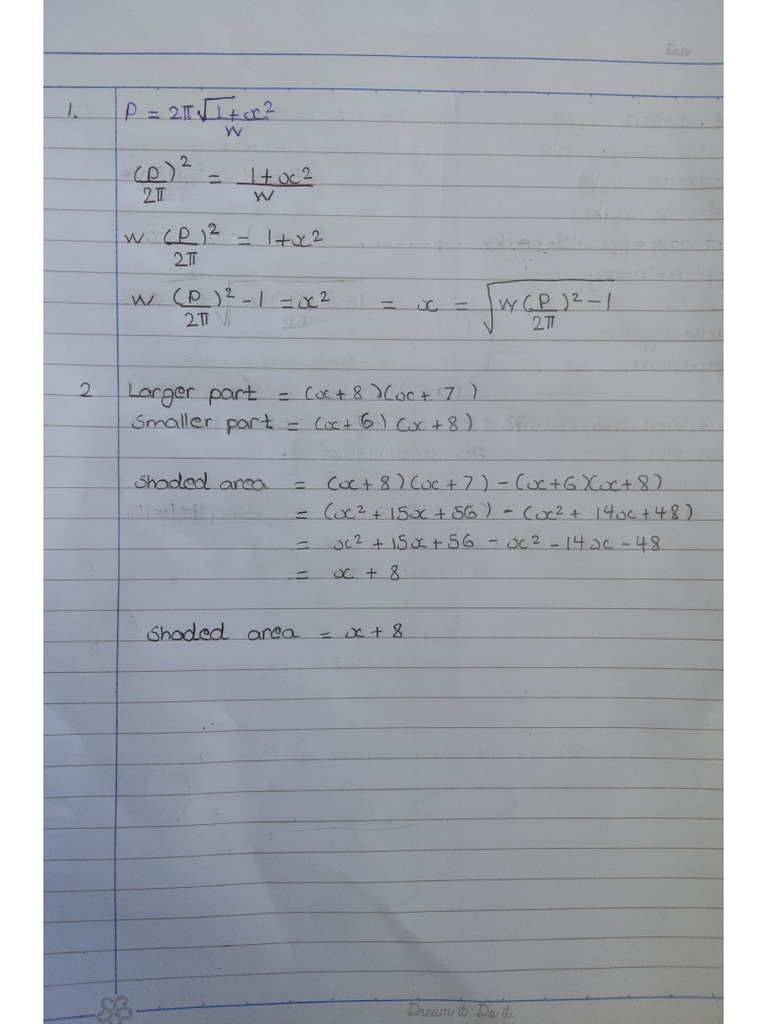 Date
1. P = 2π√1+x²/w
(P/2π)² = 1+x²/w
w (P/2π)² = 1+x²
w (P/2π)² - 1 = x² = x = √w(P/2π)² - 1
2 Larger part = (x+8)(x+7)
Smaller part = (x+6)(x+8)
Shaded area = (x+8)(x+7) - (x+6)(x+8)
= (x²+15x+56) - (x²+14x+48)
= x²+15x+56 - x² - 14x - 48
= x + 8
Shaded area = x + 8
Dream it. Do it.